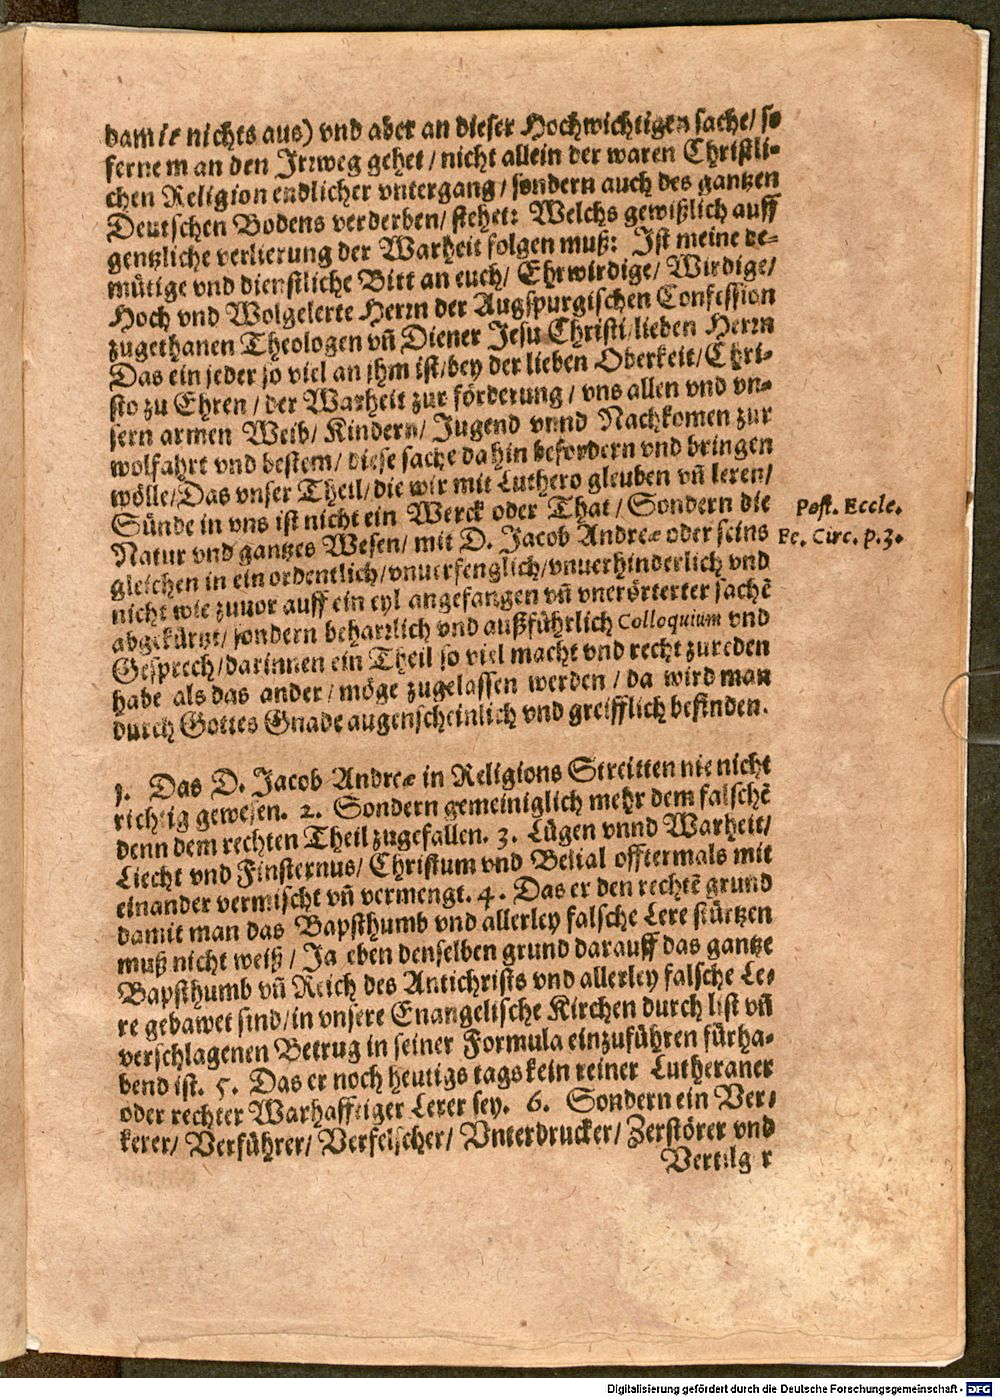 damit nichts aus) vnd aber an dieser Hochwichtigen sache/ so
ferne man den Irrweg gehet / nicht allein der waren Christli-
chen Religion endlicher vntergang / sondern auch des gantzen
Deutschen Bodens verderben/ stehet: Welchs gewißlich auff
gentzliche verlierung der Warheit folgen muß: Ist meine de-
mütige vnd dienstliche Bitt an euch/ Ehrwirdige/ Wirdige/
Hoch vnd Wolgelerte Herrn der Augspurgischen Confession
zugethanen Theologen vñ Diener Jesu Christi/ lieben Herrn
Das ein jeder so viel an jhm ist/ bey der lieben Oberkeit/ Chri-
sto zu Ehren / der Warheit zur förderung / vns allen vnd vn-
sern armen Weib/ Kindern/ Jugend vnnd Nachkomen zur
wolfahrt vnd bestem/ diese sache dahin befordern vnd bringen
wölle/ Das vnser Theil/ die wir mit Luthero gleuben vñ leren/
Sünde in vns ist nicht ein Werck oder That / Sondern die
Post. Eccle.
Natur vnd gantzes Wesen/ mit D. Jacob Andreæ oder seins
Fc. Circ. p. 3.
gleichen in ein ordentlich/ vnuerfenglich/ vnuerhinderlich vnd
nicht wie zuuor auff ein eyl angefangen vñ vnerörterter sachẽ
abgekürtzt/ sondern beharrlich vnd außführlich Colloquium vnd
Gesprech/ darinnen ein Theil so viel macht vnd recht zureden
habe als das ander / möge zugelassen werden / da wird man
durch Gottes Gnade augenscheinlich vnd greifflich befinden.
1. Das D. Jacob Andreæ in Religions Streitten nie nicht
richtig gewesen. 2. Sondern gemeiniglich mehr dem falschẽ
denn dem rechten Theil zugefallen. 3. Lügen vnnd Warheit/
Liecht vnd Finsternus/ Christum vnd Belial offtermals mit
einander vermischt vñ vermengt. 4. Das er den rechtẽ grund
damit man das Bapsthumb vnd allerley falsche Lere stürtzen
muß nicht weiß / Ja eben denselben grund darauff das gantze
Bapsthumb vñ Reich des Antichrists vnd allerley falsche Le-
re gebawet sind/ in vnsere Enangelische Kirchen durch list vñ
verschlagenen Betrug in seiner Formula einzuführen fürha-
bend ist. 5. Das er noch heutigs tags kein reiner Lutheraner
oder rechter Warhafftiger Lerer sey. 6. Sondern ein Ver-
kerer/ Verführer/ Verfelscher/ Vnterdrucker/ Zerstörer vnd
Vertilger
Digitalisierung gefördert durch die Deutsche Forschungsgemeinschaft - DFG